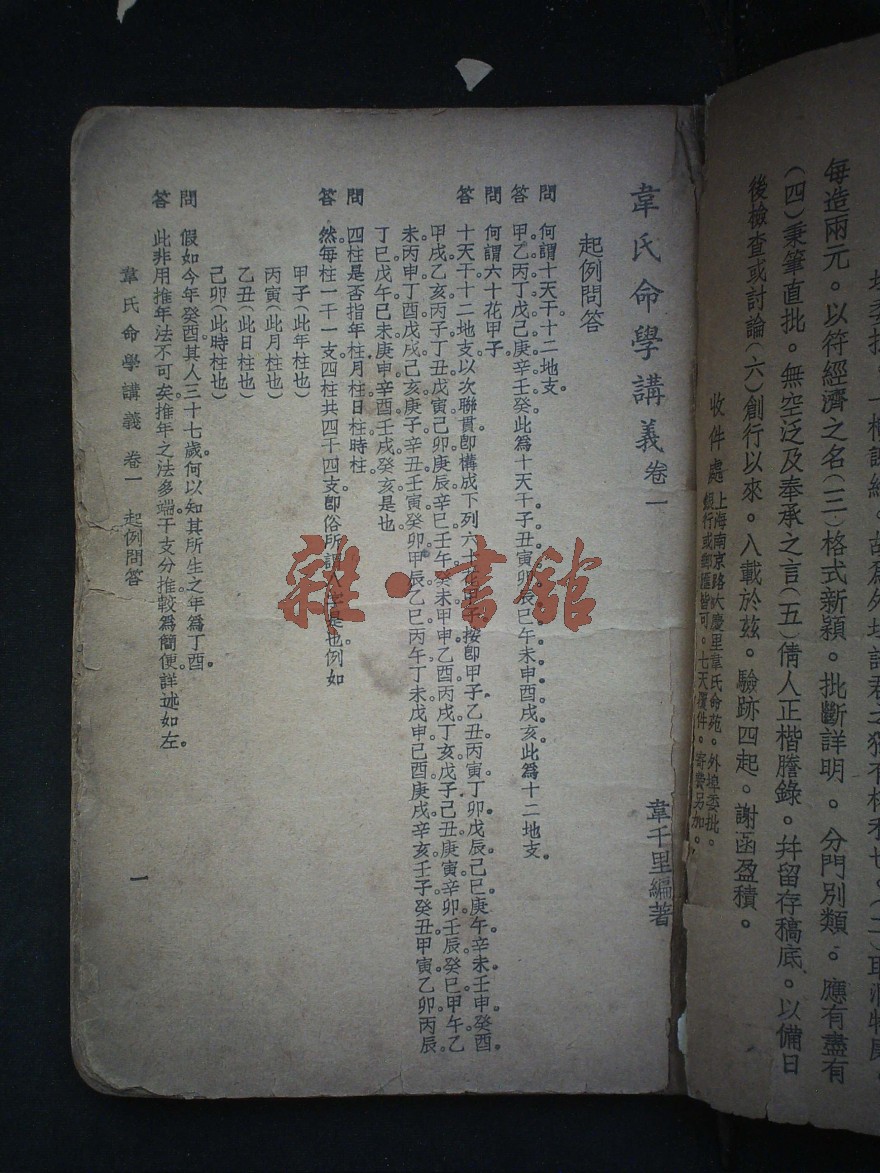 每造兩元。以符經濟之名(三)格式新穎。批斷詳明。分門別類。應有盡有
(四)秉筆直批。無空泛及奉承之言(五)倩人正楷謄錄。幷留存稿底。以備日
後檢查或討論(六)創行以來。入載於茲。驗跡四起。謝函盈積。
收件處
上海南京路大慶里韋氏命苑。外埠委批。
銀行或郵匯皆可。七天覆件。寄費另加。
韋氏命學講義卷一
韋千里編著
起例問答
問 何謂十天干十二地支。
答 甲乙丙丁戊己庚辛壬癸此爲十天干子丑寅卯辰巳午未申酉戌亥此爲十二地支。
問 何謂六十花甲子
答 十天干十二地支以次聯貫卽構成下列六十花甲子按卽甲子乙丑丙寅丁卯戊辰己巳庚午辛未壬申癸酉。
甲戌乙亥丙子丁丑戊寅己卯庚辰辛巳壬午癸未甲申乙酉丙戌丁亥戊子己丑庚寅辛卯壬辰癸巳甲午乙
未丙申丁酉戊戌己亥庚子辛丑壬寅癸卯甲辰乙巳丙午丁未戊申己酉庚戌辛亥壬子癸丑甲寅乙卯丙辰
丁巳戊午己未庚申辛酉壬戌癸亥是也
問 四柱是否指年柱月柱日柱時柱
答 然每柱一干一支四柱共四干四支卽俗所謂是也例如
甲子(此年柱也)
丙寅(此月柱也)
乙丑(此日柱也)
己卯(此時柱也)
問 假如今年癸酉其人三十七歲何以知其所生之年爲丁酉
答 此非用推年法不可矣推年之法多端干支分推較爲簡便詳述如左。
韋氏命學講義 卷一 起例問答
一
雜·書館